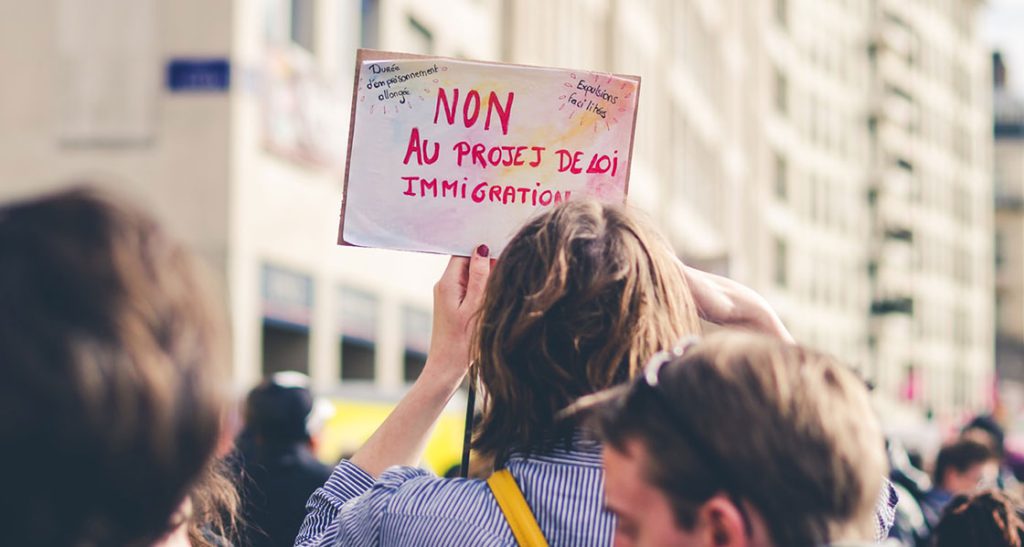 Durée
d'emprisonnement
allongée
Expulsions
facilitées
NON
AU PROJET DE LOI
IMMIGRATION